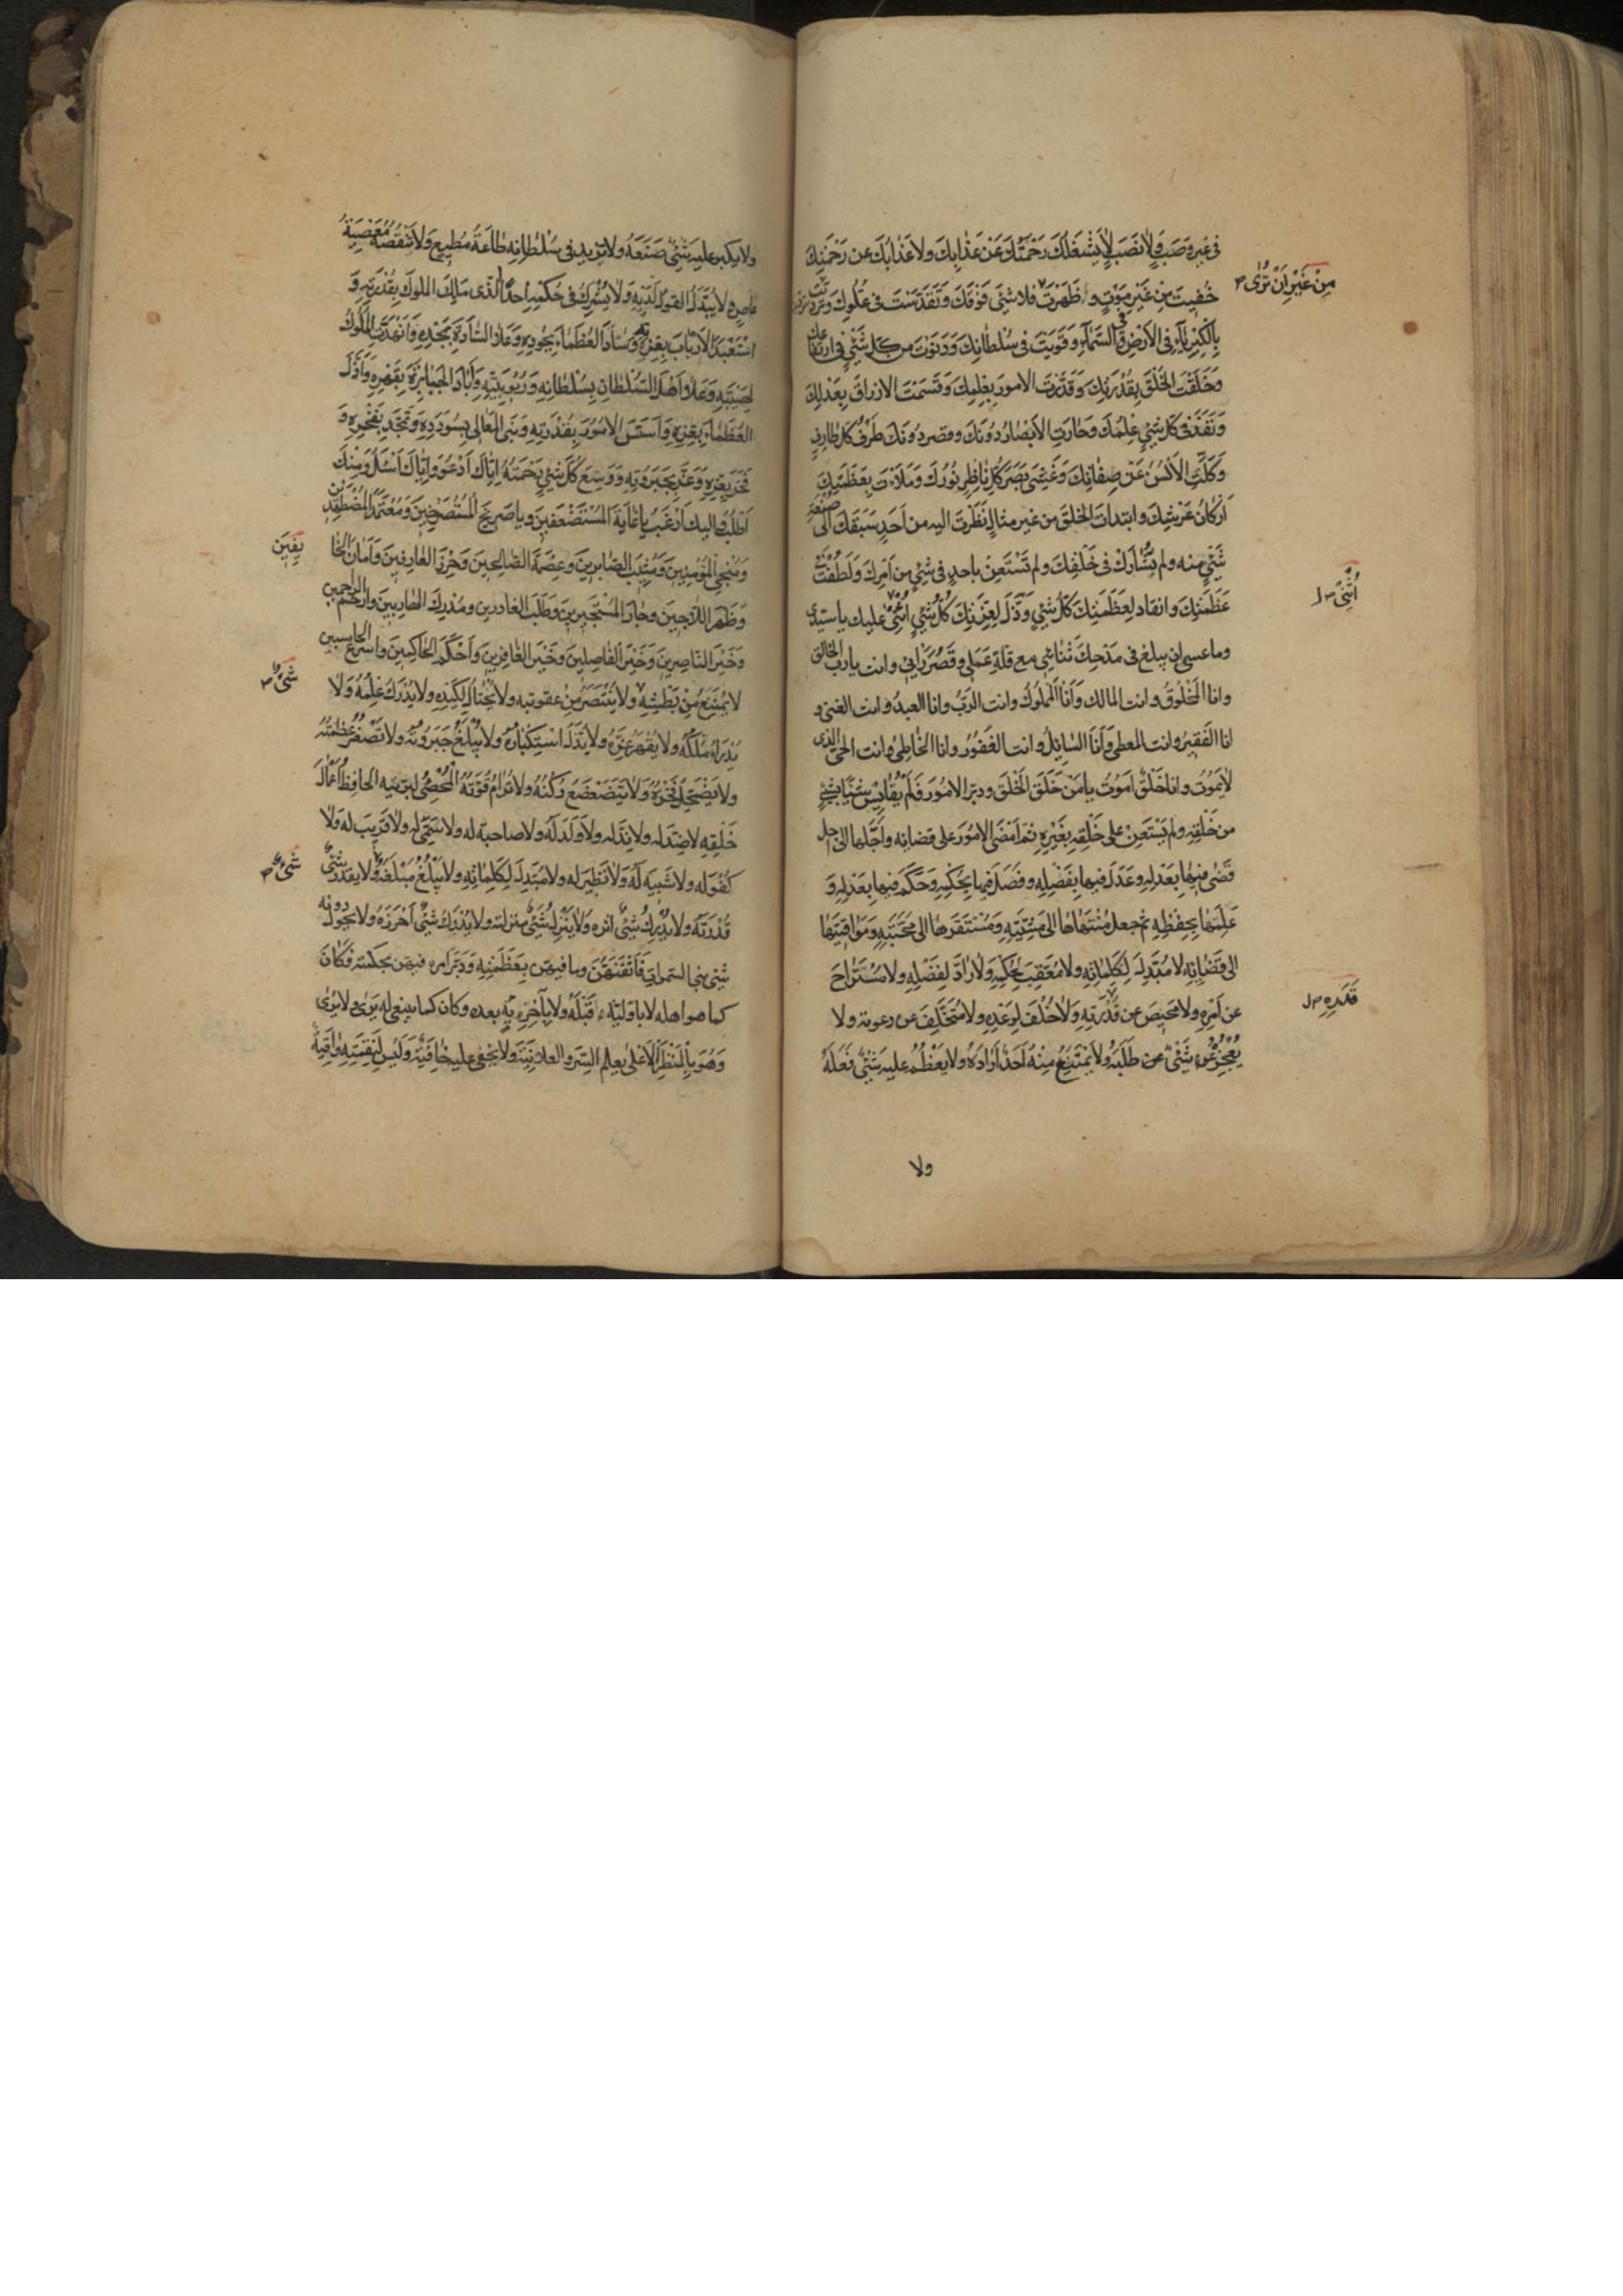 فى غير وصب ولا نصب لا يشغلك رحمتك عن عذابك ولا عذابك عن رحمتك
خفيت من غير موت و ظهرت فلا شئ فوقك وتقدست فى علوك وتردّيت
من غير ان ترى
بالكبرياء فى الارض وفى السماء وقويت فى سلطانك ودنوت من كل شئ فى ارتفاعك
وخلقت الخلق بقدرتك وقدّرت الامور بعلمك وقسمت الارزاق بعدلك
ونفذ فى كل شئ علمك وحارت الابصار دونك وقصر دونك طرف كل طارف
وكلّت الالسن عن صفاتك وغشى بصر كل ناظر نورك وملأت بعظمتك
اركان عرشك وابتدات الخلق من غير مثال نظرت اليه من احد سبقك الى صنعة
شئ منه ولم تشارك فى خلقك ولم تستعن باحد فى شئ من امرك ولطفت
عظمتك وانقاد لعظمتك كل شئ وذلّ لعزتك كل شئ اثنى عليك يا سيدى
اُثنى
وما عسى ان يبلغ فى مدحك ثنائى مع قلة عملى وقصر رايى وانت يا رب الخالق
وانا المخلوق وانت المالك وانا المملوك وانت الربّ وانا العبد وانت الغنى و
انا الفقير وانت المعطى وانا السائل وانت الغفور وانا الخاطئ وانت الحى الذى
لا يموت وانا خلق اموت يا من خلق الخلق ودبّر الامور فلم يقايس شيئا بشئ
من خلقه ولم يستعن على خلقه بغيره ثم امضى الامور على قضائه واجّلها الى اجل
قضى فيها بعدله وعدل فيها بفضله وفصل فيها بحكمه وحكم فيها بعدله و
علمها بحفظه ثم جعل منتهاها الى مشيّته ومستقرها الى محبته ومواقيتها
الى قضائه لا مبدّل لكلماته ولا معقب لحكمه ولا رادّ لفضله ولا مستراح
عن امره ولا محيص عن قدرته ولا خلف لوعده ولا متخلف عن دعوته ولا
قَدَرِهِ
يعجزه شئ عن طلبه ولا يمتنع منه احد اراده ولا يعظم عليه شئ فعله
ولا
ولا يكبر عليه شئ صنعه ولا تزيد فى سلطانه طاعة مطيع ولا تنقصه معصية
عاص ولا يبدّل القول لديه ولا يشرك فى حكمه احدا الذى ملك الملوك بقدرته و
استعبد الارباب بعزه وساد العظماء بجوده وعلا السادة بمجده وانهدّت الملوك
لهيبته وعلا اهل السلطان بسلطانه وربوبيته واباد الجبابرة بقهره واذلّ
العظماء بعزه واسّس الامور بقدرته وبنى المعالى بسودده وتمجّد بفخره و
فخر بعزه وعزّ بجبروته ووسع كل شئ رحمته ايّاك ادعو وايّاك اسئل ومنك
اطلب واليك ارغب يا غاية المستضعفين ويا صريخ المستصرخين ومعتمد المضطهدين
ومنجى المؤمنين ومثيب الصابرين وعصمة الصالحين وحرز العارفين وامان الخا
يفين
وظهر اللاجين وجار المستجيرين وطلب الغادرين ومدرك الهاربين وارحم الراحمين
وخير الناصرين وخير الفاصلين وخير الغافرين واحكم الحاكمين واسرع الحاسبين
لا يمتنع من بطشه ولا ينتصر من عقوبته ولا يحتال لكيده ولا يدرك علمه ولا
شئ
يدرا ملكه ولا يقهر عزّه ولا يذلّ استكباره ولا يبلغ جبروته ولا تصغر عظمته
ولا يضمحل فخره ولا يتضعضع ركنه ولا ترام قوته المحصى لبريته الحافظ اعمال
خلقه لا ضدّ له ولا ندّ له ولا ولد له ولا صاحبة له ولا سمىّ له ولا قريب له ولا
كفو له ولا شبيه له ولا نظير له ولا مبدّل لكلماته ولا يبلغ مبلغه ولا يقدر شئ
شئ
قدرته ولا يدرك شئ اثره ولا ينزل شئ منزلته ولا يدرك شئ احرزه ولا يحول دونه
شئ بنى السموات فاتقنهنّ وما فيهن بعظمته ودبّر امره فيهن بحكمته فكان
كما هو اهله لا باولية قبله ولا بآخرية بعده وكان كما ينبغى له يرى ولا يرى
وهو بالمنظر الاعلى يعلم السر والعلانية ولا يخفى عليه خافية وليس لنقمته واقية